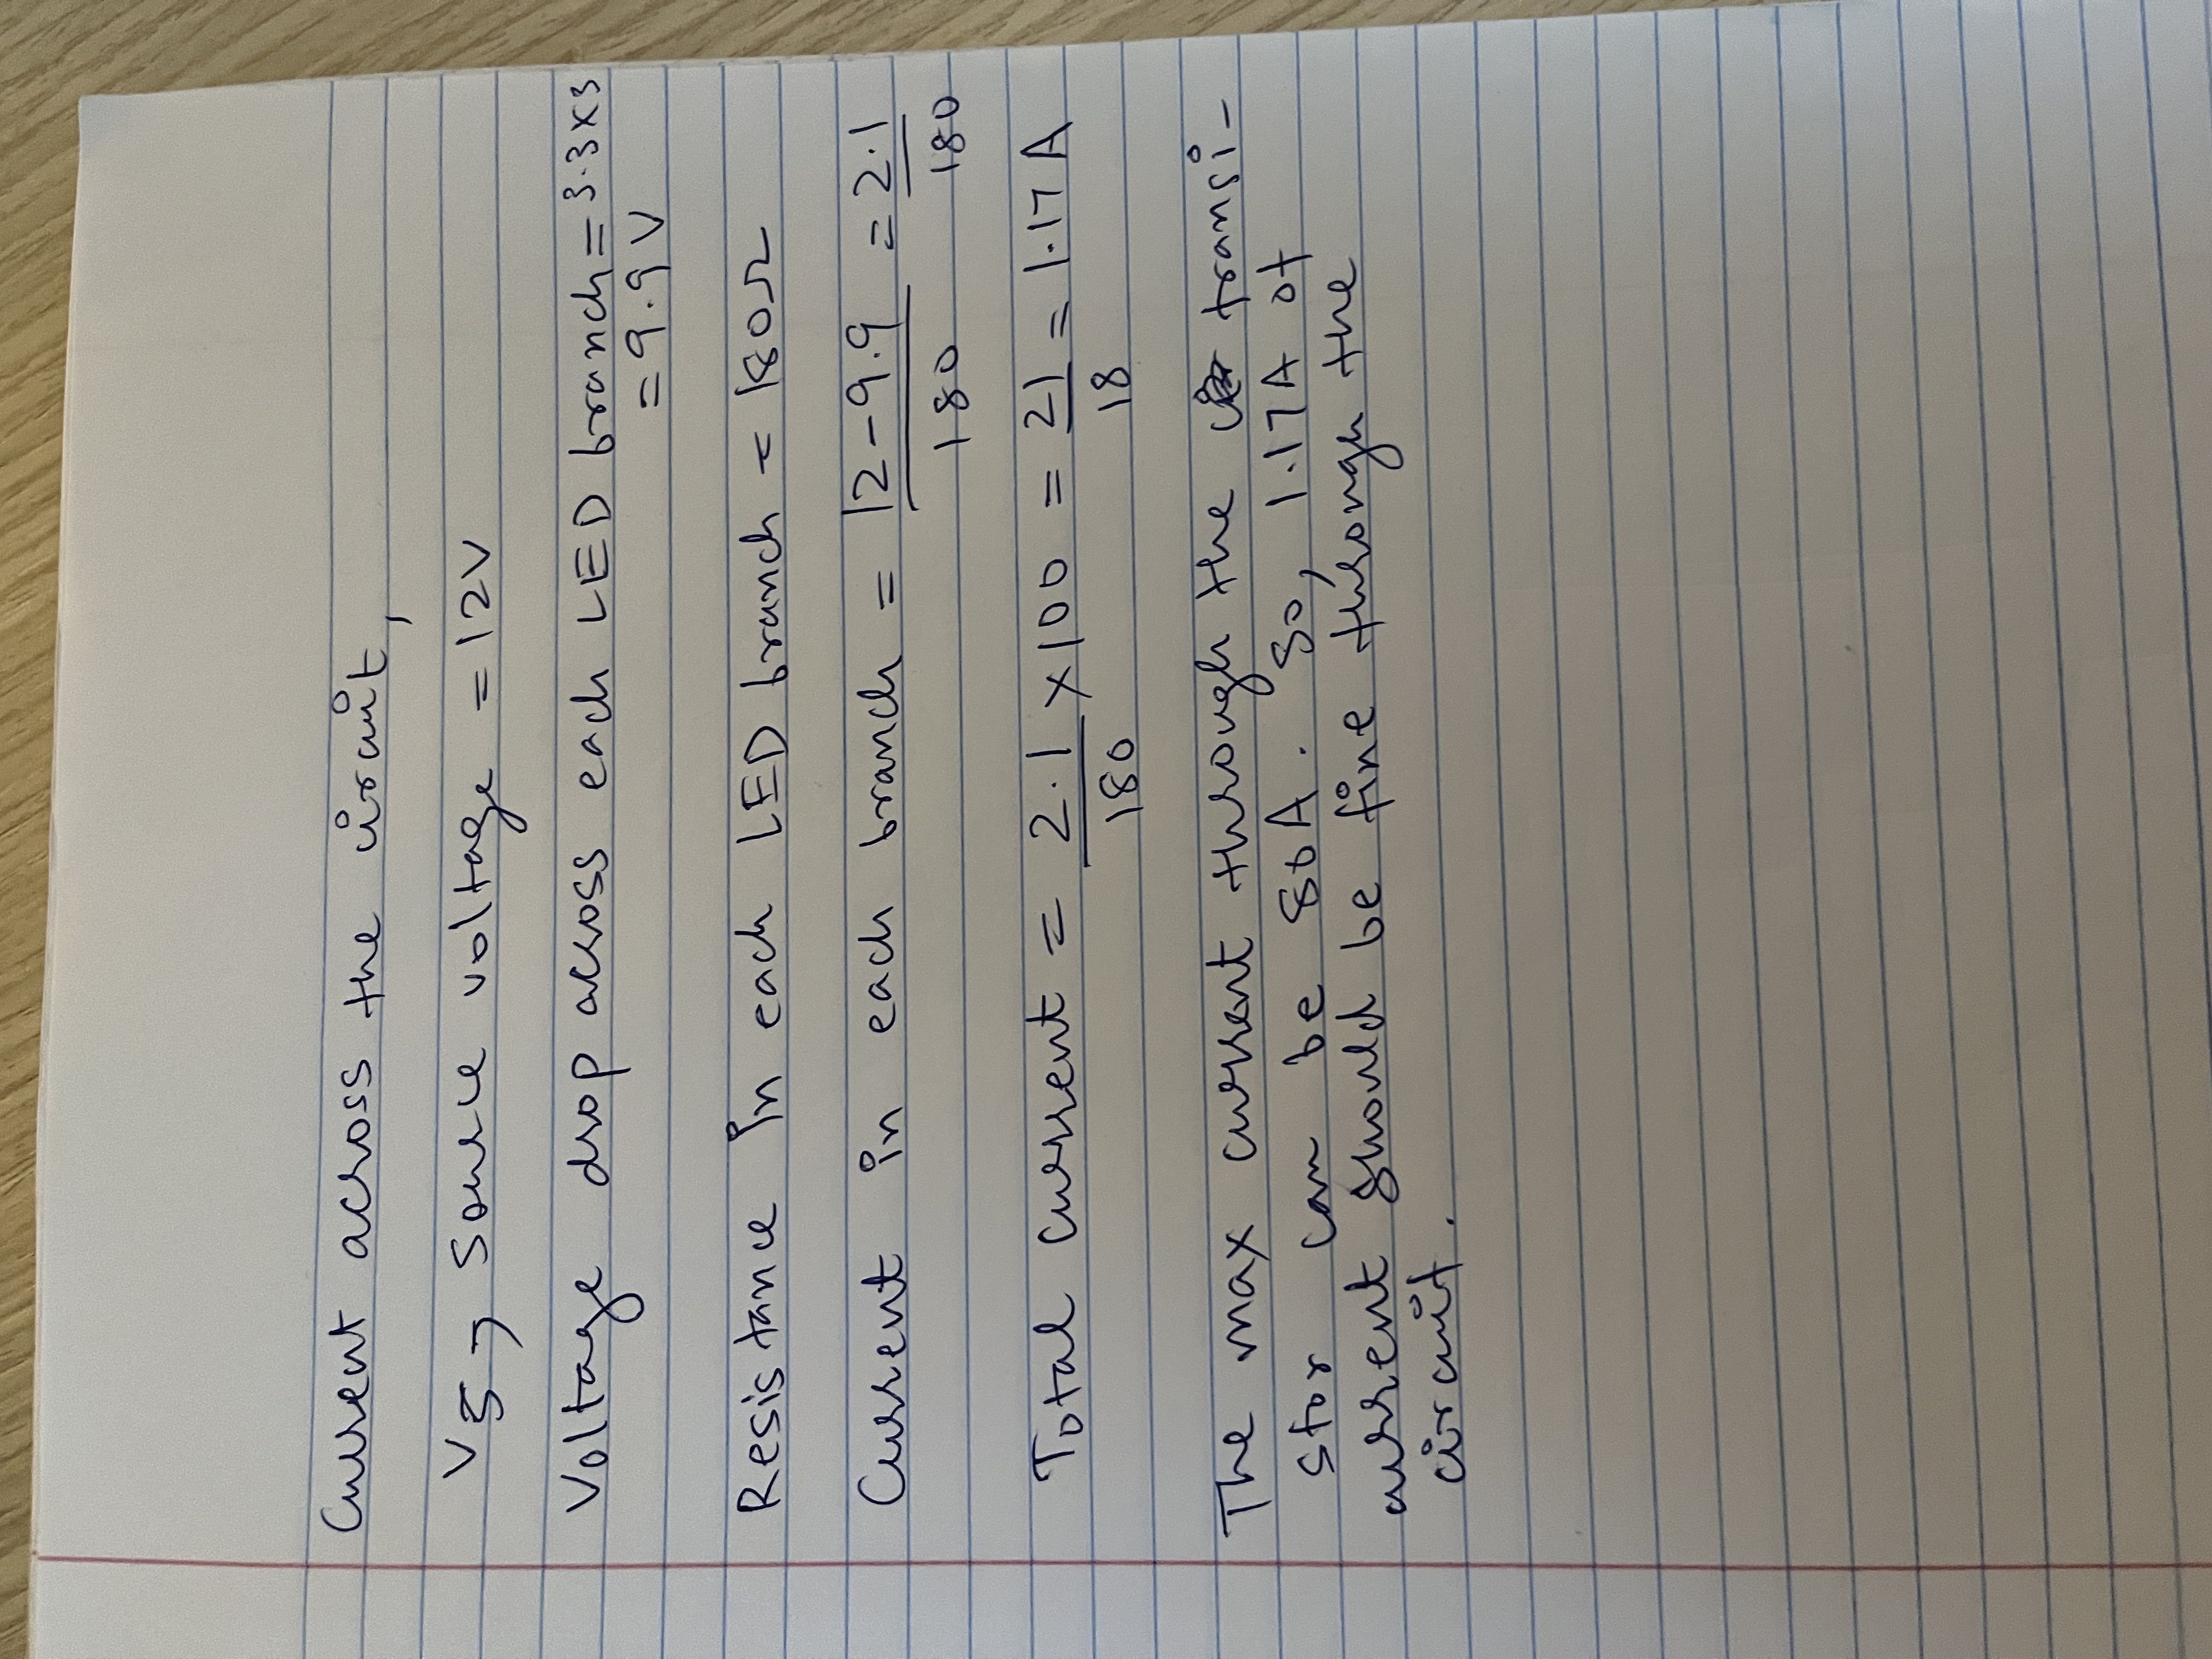 Current across the circuit,
Vs, Source voltage = 12V
Voltage drop across each LED branch = 3.3x3
= 9.9 V
Resistance in each LED branch = 180Ω
Current in each branch = 12-9.9/180 = 2.1/180
Total current = 2.1/180 x 100 = 21/18 = 1.17 A
The max current through the transi-
stor can be 80A. So, 1.17A of
current should be fine through the
circuit.